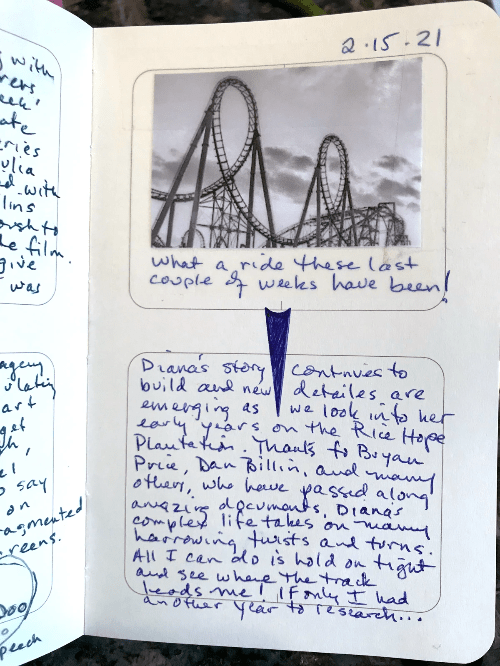 2.15.21
What a ride these last
couple of weeks have been!
Diana's story continues to
build and new detailes are
emerging as we look into her
early years on the Rice Hope
Plantation. Thanks to Bryan
Price, Dan Billin, and many
others, who have passed along
amazing documents. Diana's
complex life takes on many
harrowing twists and turns.
All I can do is hold on tight
and see where the track
leads me! If only I had
another year to research...
with
ate
ulia
with
lins
to
film.
give
was
art
get
say
on
fragmented
screens.
Doo
speech